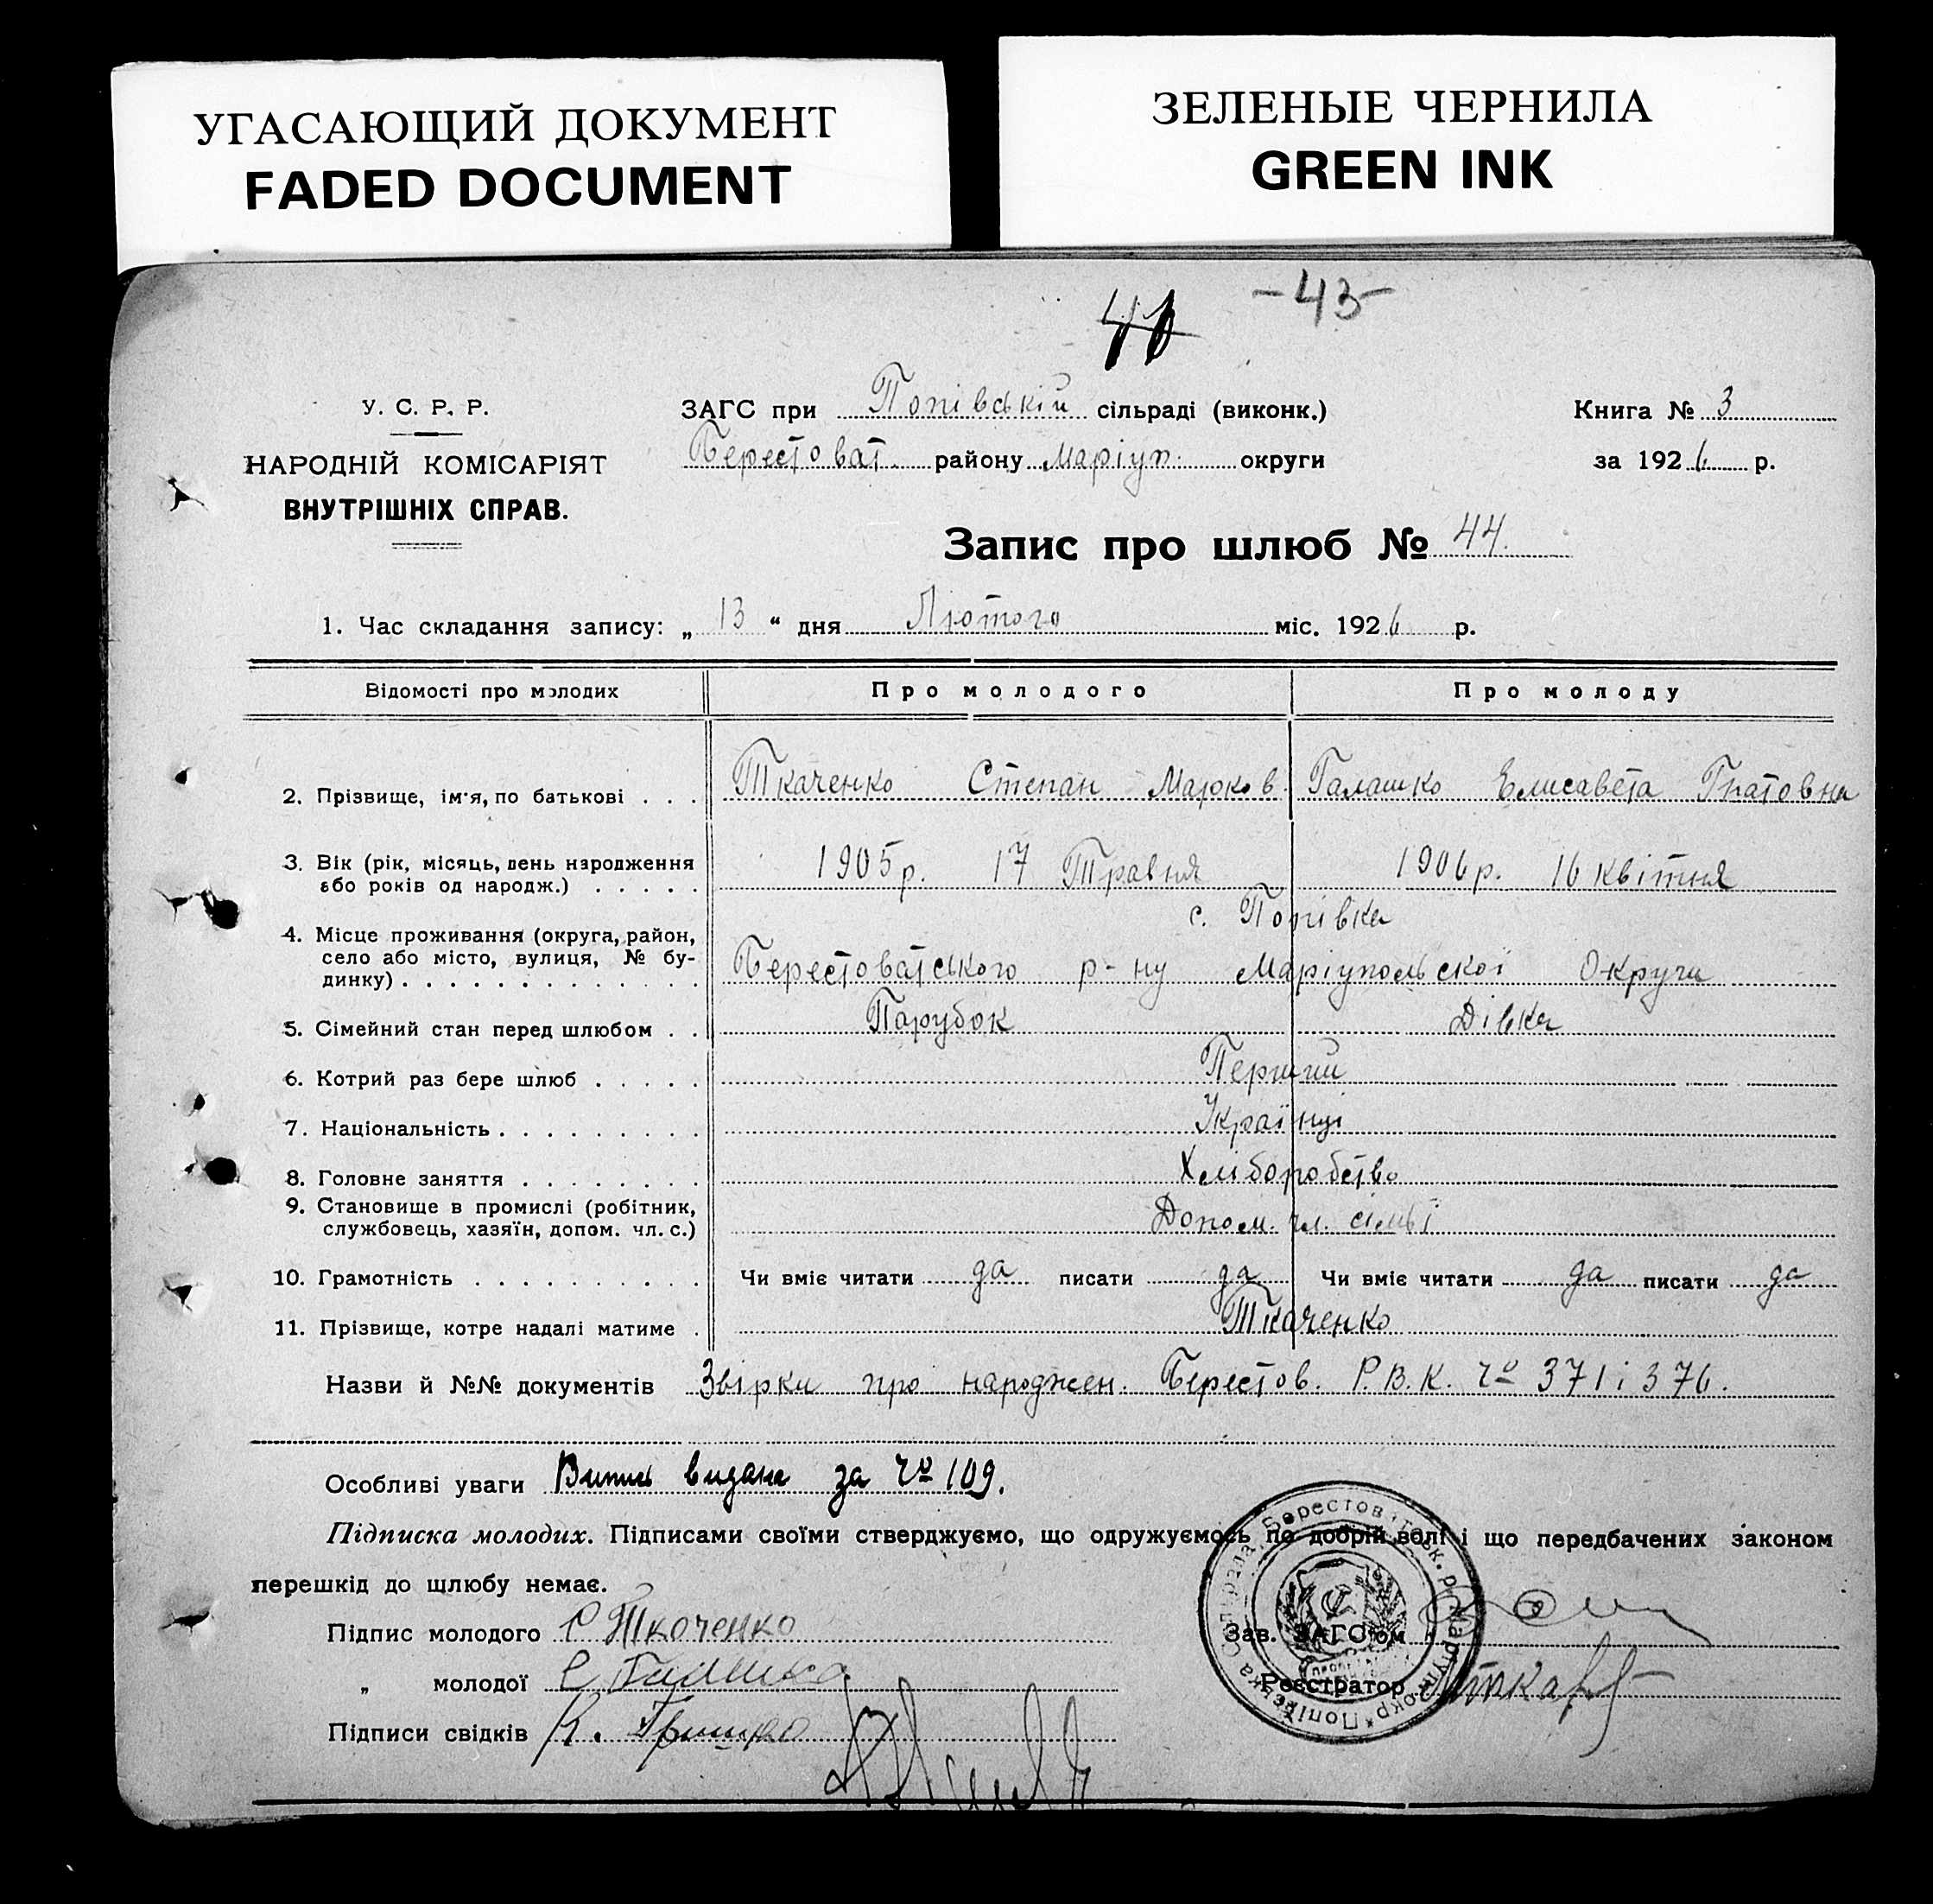 УГАСАЮЩИЙ ДОКУМЕНТ
FADED DOCUMENT
ЗЕЛЕНЫЕ ЧЕРНИЛА
GREEN INK
-43-
У. С. Р. Р.
НАРОДНІЙ КОМІСАРІЯТ
ВНУТРІШНІХ СПРАВ.
ЗАГС при Попівській сільраді (виконк.)
Берестоват. району Маріуп. округи
Книга № 3
за 1926 р.
Запис про шлюб № 44.
1. Час складання запису: „ 13 “ дня Лютого міс. 1926 р.
Відомості про молодих Про молодого Про молоду
2. Прізвище, ім'я, по батькові . . . Ткаченко Степан Марков. Галашко Елисавета Гнатовна
3. Вік (рік, місяць, день народження
або років од народж.) . . . . . 1905 р. 17 Травня 1906 р. 16 квітня
с. Попівка
4. Місце проживання (округа, район,
село або місто, вулиця, № бу-
динку) . . . . . . . . . . . . . Берестоватського р-ну Маріупольскої Округи
5. Сімейний стан перед шлюбом . . Парубок Дівка
6. Котрий раз бере шлюб . . . . . Перший
7. Національність . . . . . . . . . Українці
8. Головне заняття . . . . . . . . Хліборобство
9. Становище в промислі (робітник,
службовець, хазяїн, допом. чл. с.) Допом. чл. сімьі
10. Грамотність . . . . . . . . . . Чи вміє читати да писати да Чи вміє читати да писати да
11. Прізвище, котре надалі матиме . Ткаченко
Назви й №№ документів Звірки про народжен. Берестов. Р.В.К. Чо 371 і 376.
Особливі уваги Випись видана за Чо 109.
Підписка молодих. Підписами своїми стверджуємо, що одружуємось по добрій волі і що передбачених законом
перешкід до шлюбу немає.
Підпис молодого С Ткоченко
„ молодої Є Галашко
Підписи свідків К. Гришко
Зав. ЗАГС'ом
Реєстратор